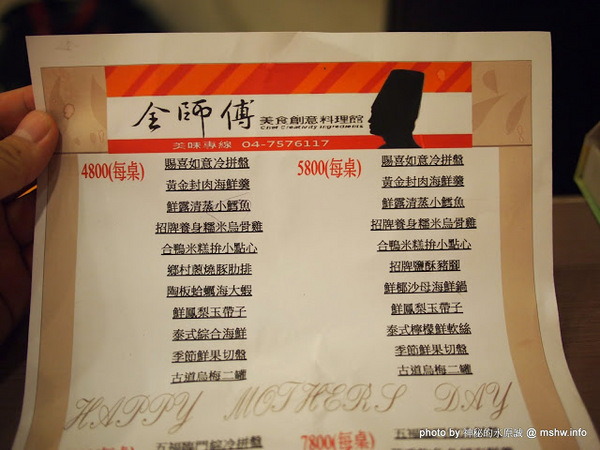 全師傅 美食創意料理館
Chef Creativity Ingredients
美味專線 04-7576117
4800(每桌)
賜喜如意冷拼盤
黃金封肉海鮮羹
鮮露清蒸小鱈魚
招牌養身糯米烏骨雞
合鴨米糕拚小點心
鄉村蔥燒豚肋排
陶板蛤蠣海大蝦
鮮鳳梨玉帶子
泰式綜合海鮮
季節鮮果切盤
古道烏梅二罐
5800(每桌)
賜喜如意冷拼盤
黃金封肉海鮮羹
鮮露清蒸小鱈魚
招牌養身糯米烏骨雞
合鴨米糕拚小點心
招牌鹽酥豬腳
鮮椰沙母海鮮鍋
鮮鳳梨玉帶子
泰式檸檬鮮軟絲
季節鮮果切盤
古道烏梅二罐
HAPPY MOTHERS DAY
五福臨門綜冷拼盤
7800(每桌)
photo by 神秘的水原誠 @ mshw.info